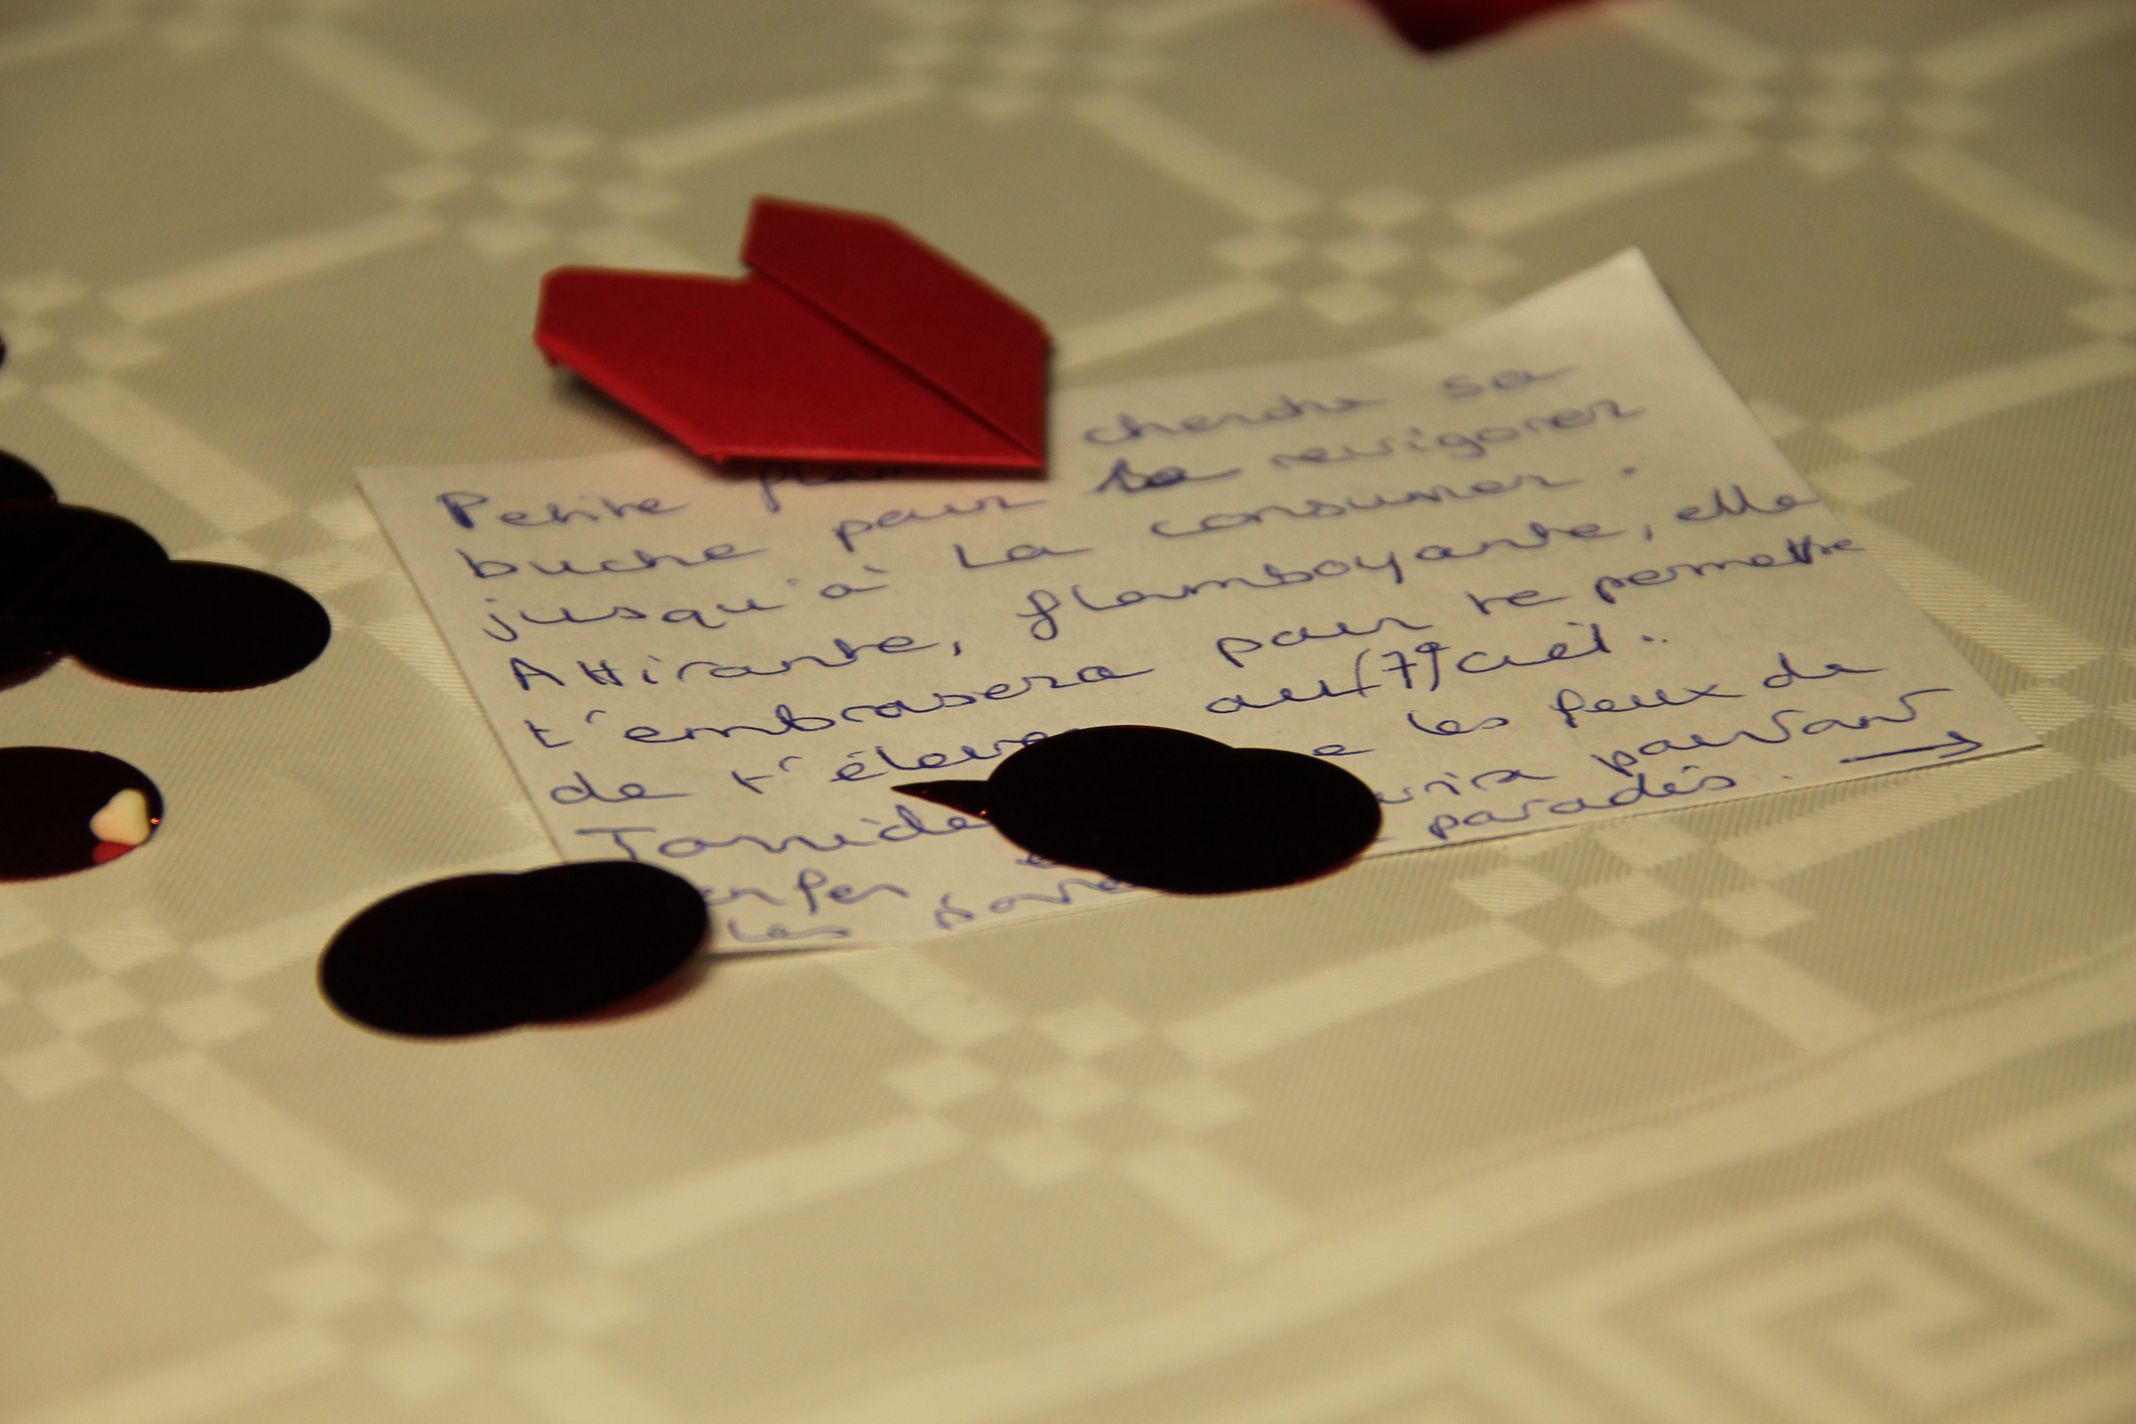 Petite cherche sa
buche pour la revigorer
jusqu'à la consumer.
Attirante, flamboyante, elle
t'embrasera pour te permettre
de t'élever au (7e) ciel..
Torride les feux de
enfer pouvant
les paradis.